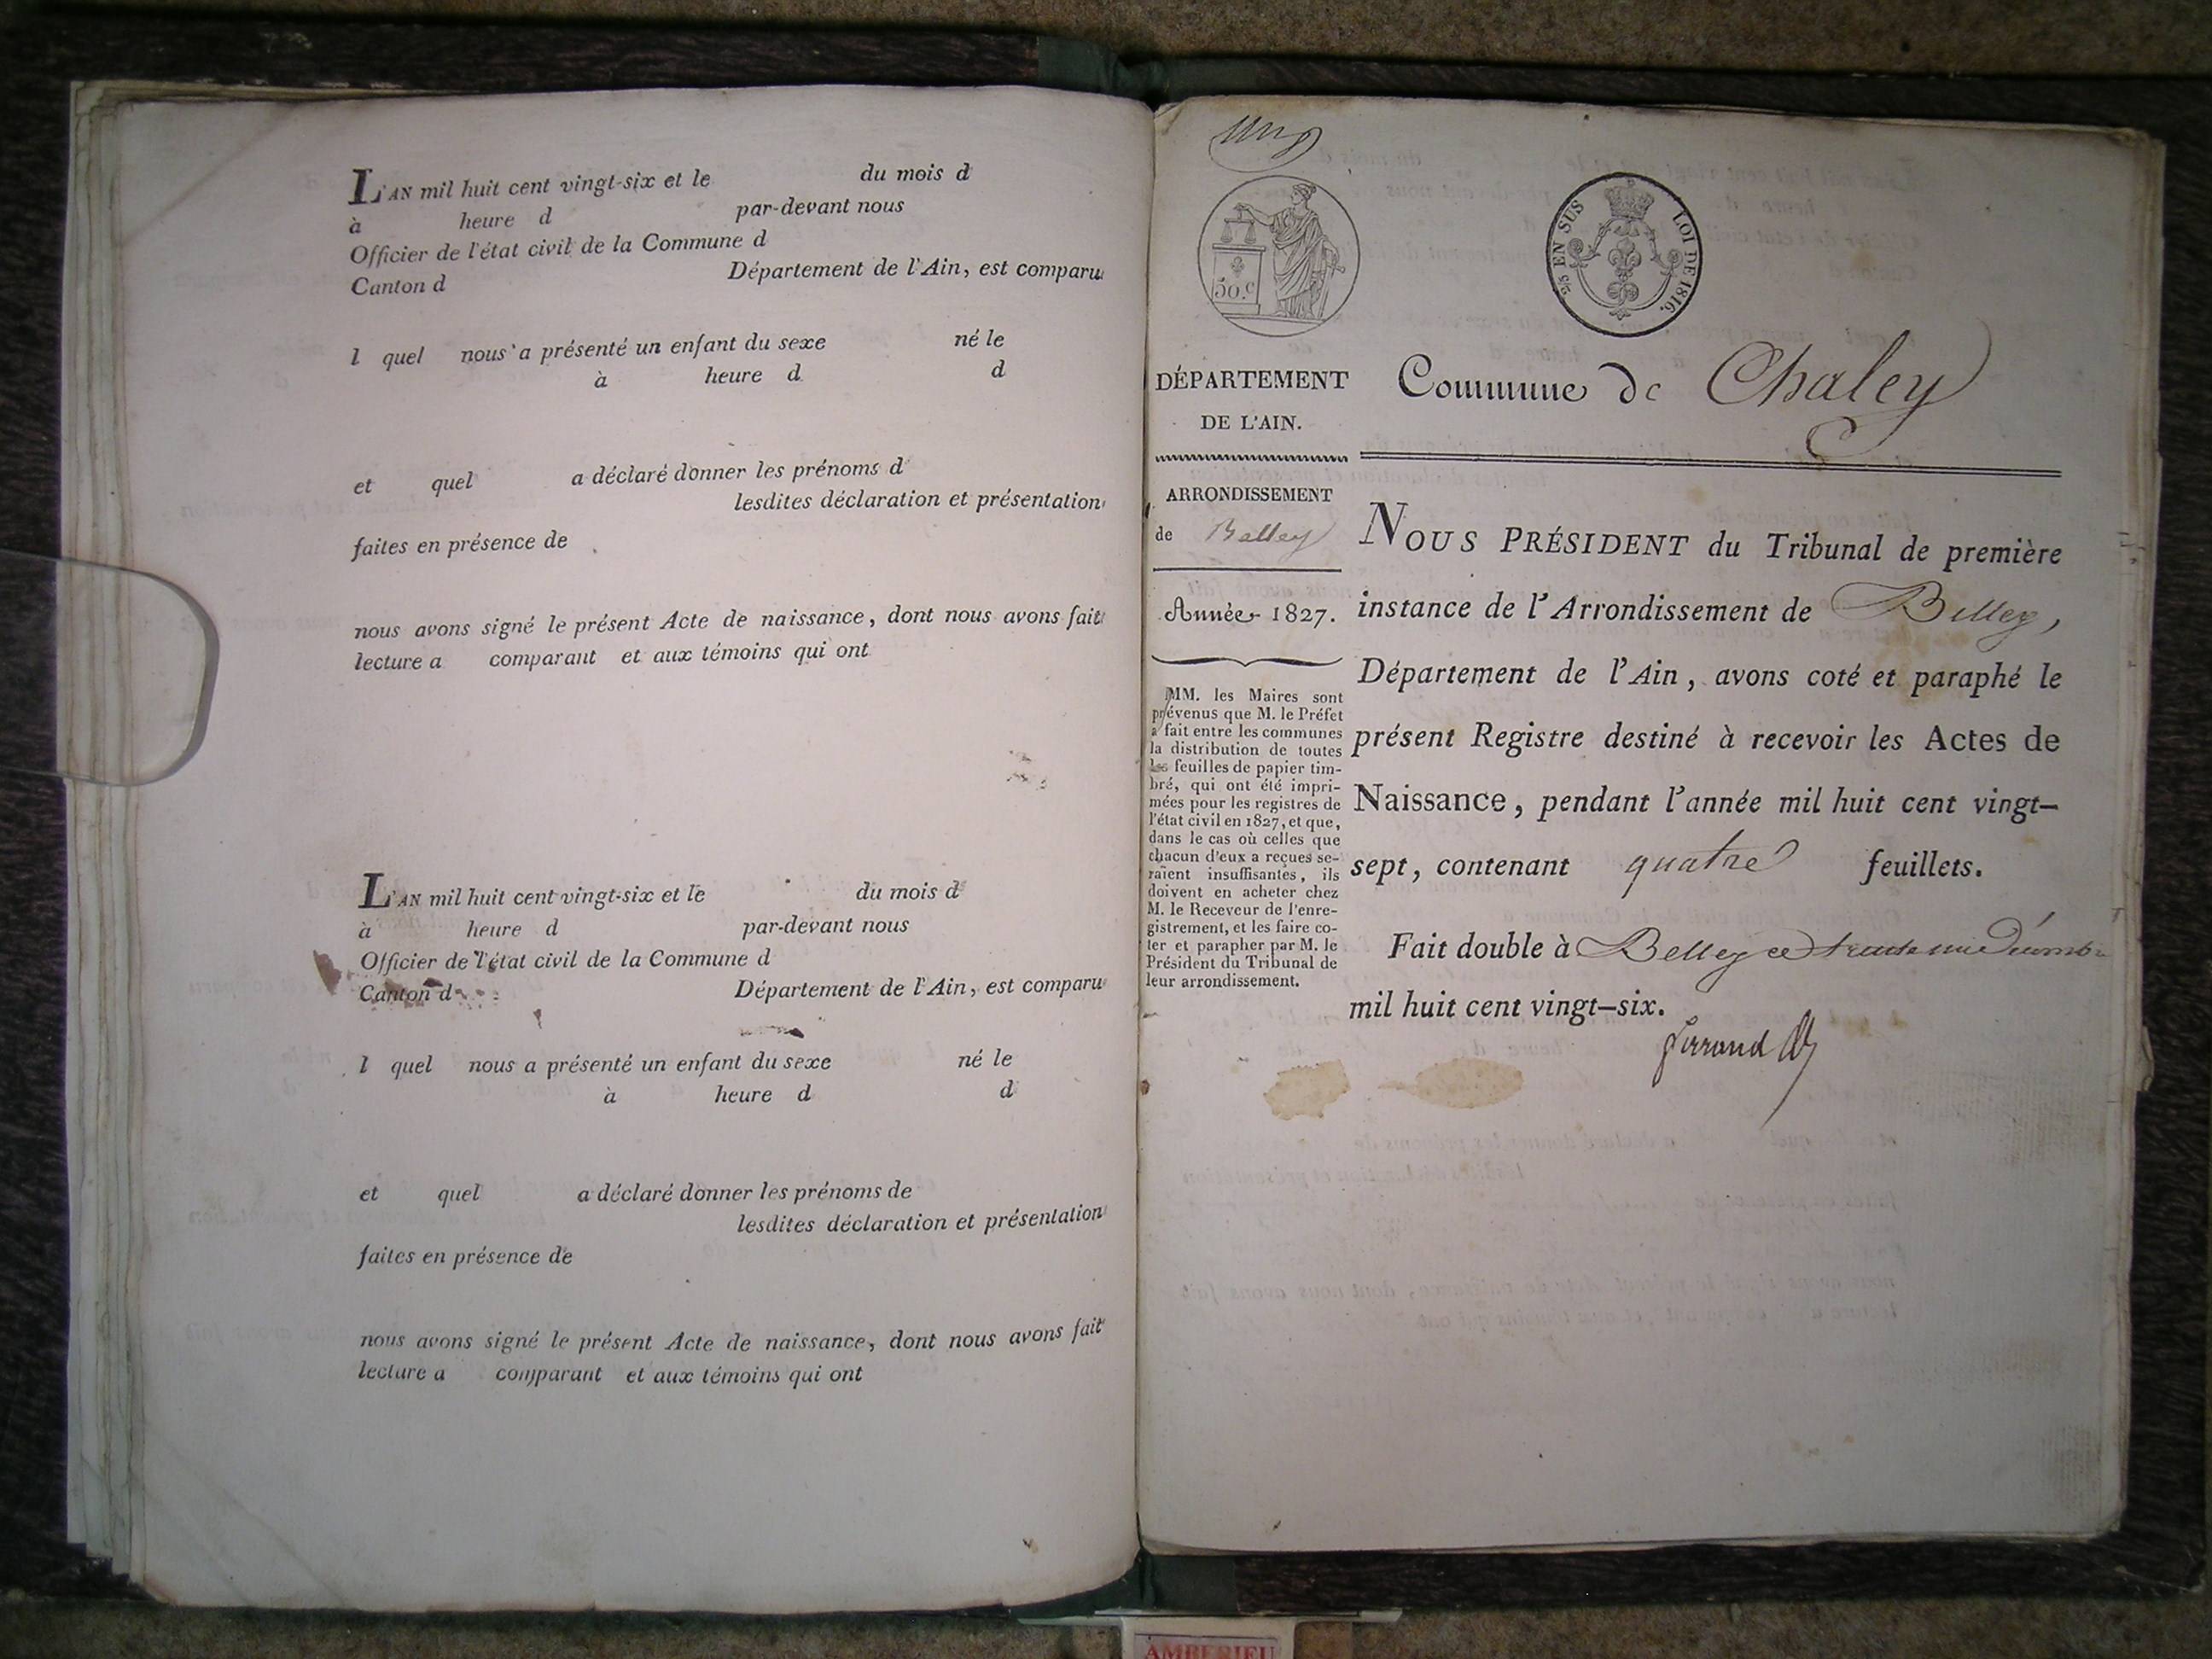 L'AN mil huit cent vingt-six et le du mois d
à heure d par-devant nous
Officier de l'état civil de la Commune d
Canton d Département de l'Ain, est comparu
l quel nous a présenté un enfant du sexe né le
à heure d d
et quel a déclaré donner les prénoms d
lesdites déclaration et présentation
faites en présence de
nous avons signé le présent Acte de naissance, dont nous avons fait
lecture a comparant et aux témoins qui ont
L'AN mil huit cent vingt-six et le du mois d
à heure d par-devant nous
Officier de l'état civil de la Commune d
Canton d Département de l'Ain, est comparu
l quel nous a présenté un enfant du sexe né le
à heure d d
et quel a déclaré donner les prénoms de
lesdites déclaration et présentation
faites en présence de
nous avons signé le présent Acte de naissance, dont nous avons fait
lecture a comparant et aux témoins qui ont
50.c
2/5 EN SUS LOI DE 1816.
DÉPARTEMENT
DE L'AIN.
ARRONDISSEMENT
de Belley
Année 1827.
MM. les Maires sont
prévenus que M. le Préfet
a fait entre les communes
la distribution de toutes
les feuilles de papier tim-
bré, qui ont été impri-
mées pour les registres de
l'état civil en 1827, et que,
dans le cas où celles que
chacun d'eux a reçues se-
raient insuffisantes, ils
doivent en acheter chez
M. le Receveur de l'enre-
gistrement, et les faire co-
ter et parapher par M. le
Président du Tribunal de
leur arrondissement.
Commune de Chaley
NOUS PRÉSIDENT du Tribunal de première
instance de l'Arrondissement de Belley,
Département de l'Ain, avons coté et paraphé le
présent Registre destiné à recevoir les Actes de
Naissance, pendant l'année mil huit cent vingt-
sept, contenant quatre feuillets.
Fait double à Belley ce trente un Décemb
mil huit cent vingt-six.
AMBERIEU